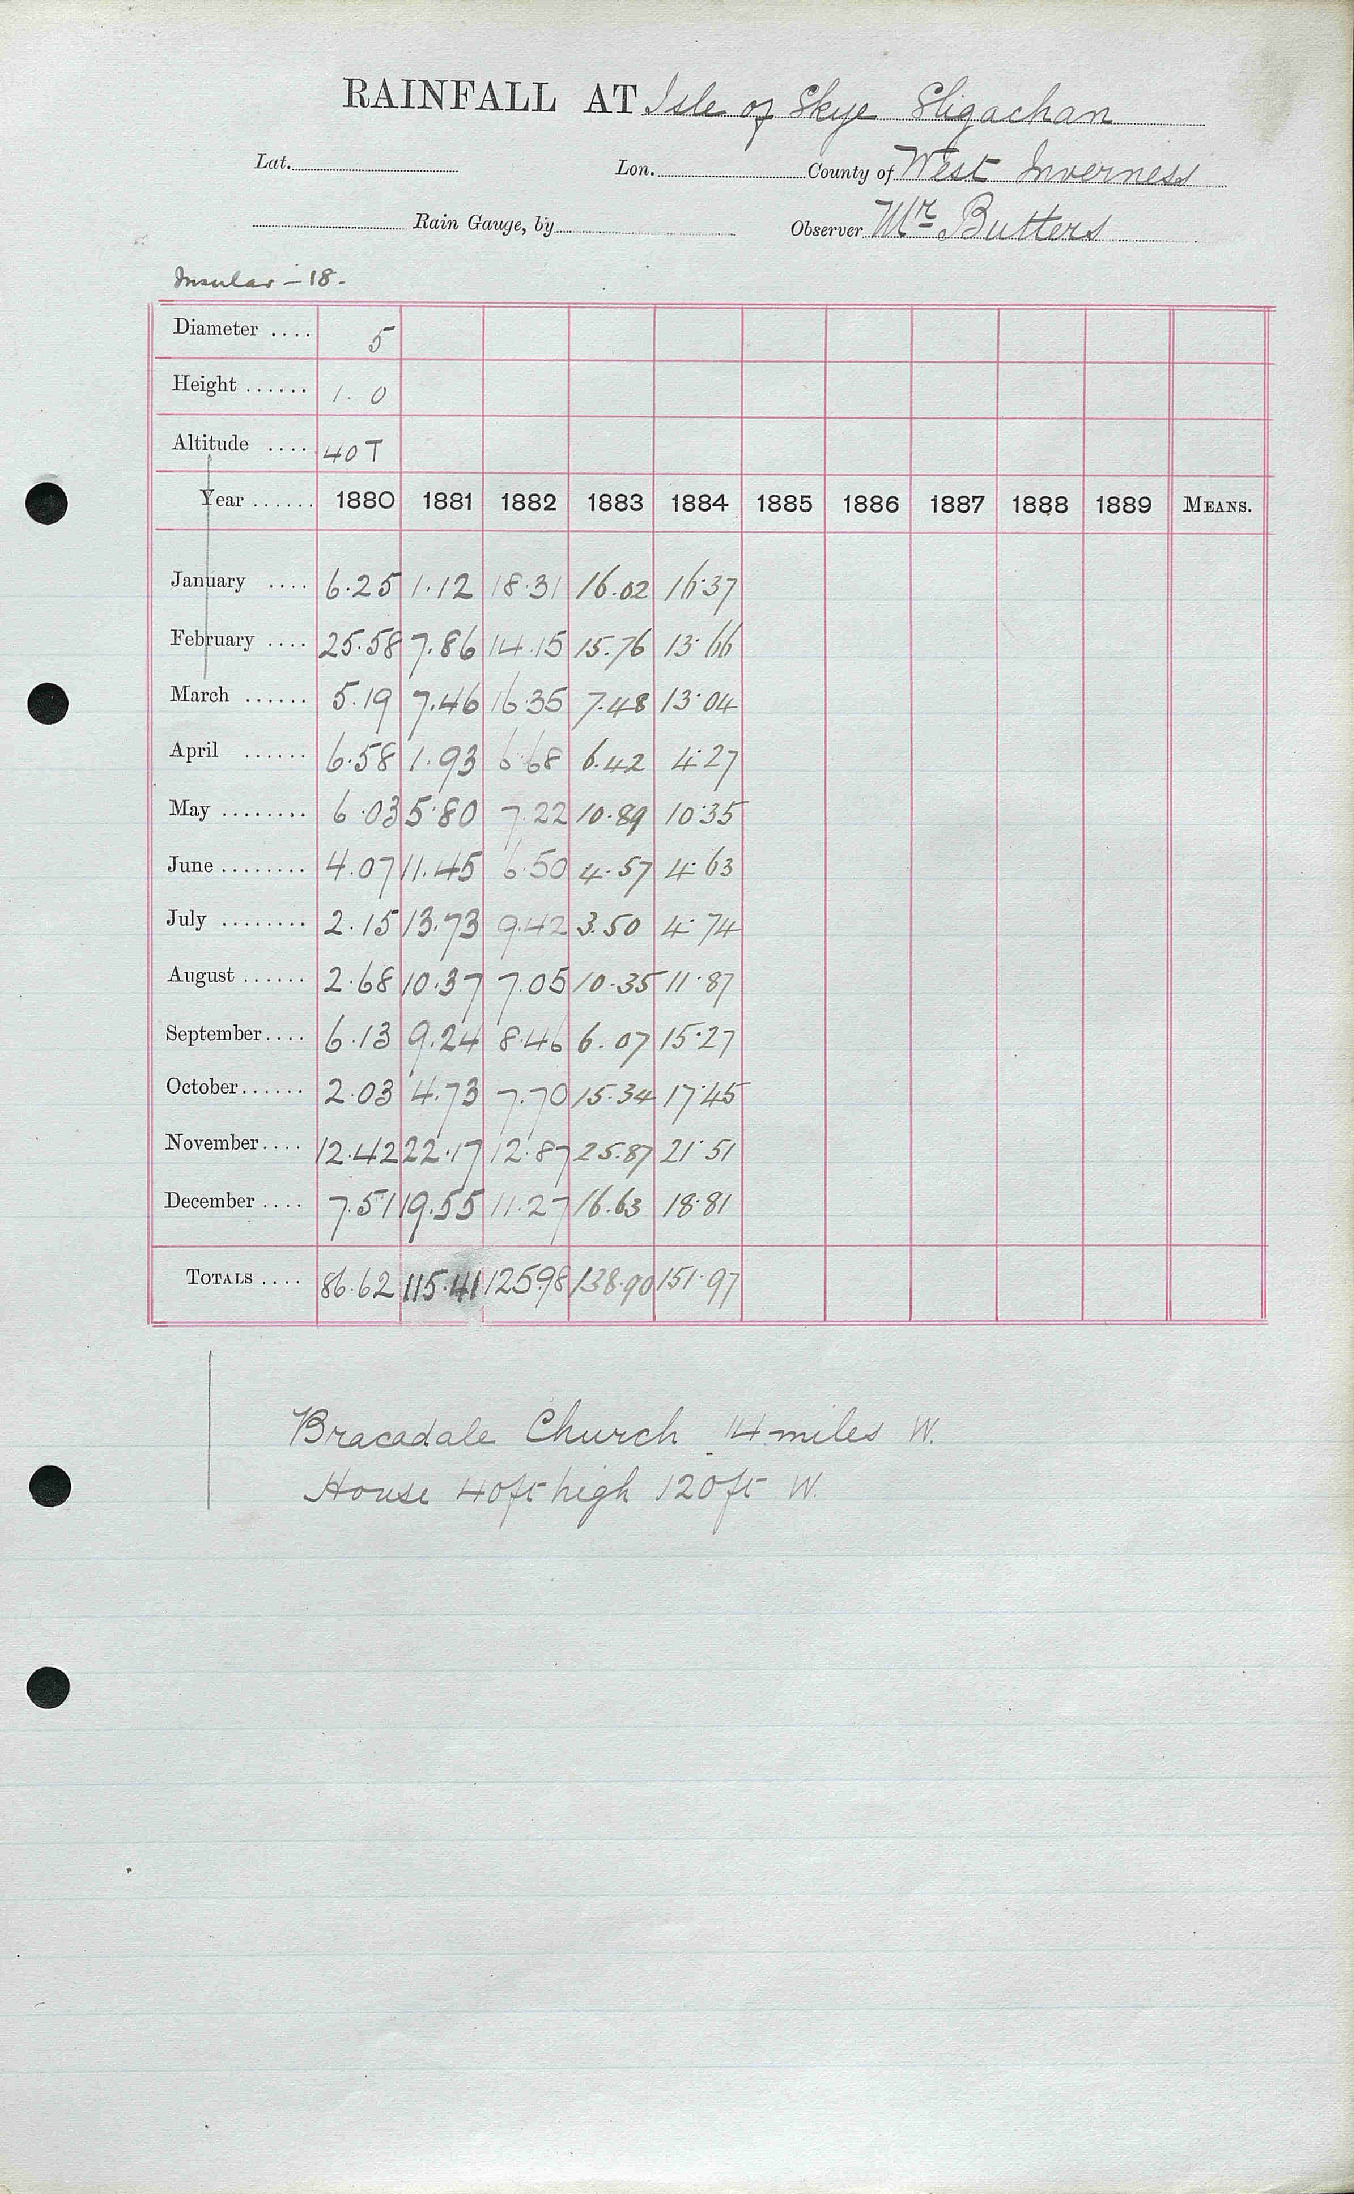 RAINFALL AT Isle of Skye Sligachan
Lat. Lon. County of West Inverness
Rain Gauge, by Observer Mr Butters
Insular - 18 -
Diameter .... 5
Height ...... 1. 0
Altitude .... 40 T
Year ...... 1880 1881 1882 1883 1884 1885 1886 1887 1888 1889 MEANS.
January .... 6.25 1.12 18.31 16.02 16.37
February .... 25.58 7.86 14.15 15.76 13.66
March ...... 5.19 7.46 16.35 7.48 13.04
April ...... 6.58 1.93 6.68 6.42 4.27
May ........ 6.03 5.80 7.22 10.89 10.35
June ........ 4.07 11.45 6.50 4.57 4.63
July ........ 2.15 13.73 9.42 3.50 4.74
August ...... 2.68 10.37 7.05 10.35 11.87
September.... 6.13 9.24 8.46 6.07 15.27
October...... 2.03 4.73 7.70 15.34 17.45
November.... 12.42 22.17 12.87 25.87 21.51
December .... 7.51 19.55 11.27 16.63 18.81
TOTALS .... 86.62 115.41 125.98 138.90 151.97
Bracadale Church 14 miles W.
House 40ft high 120ft W.